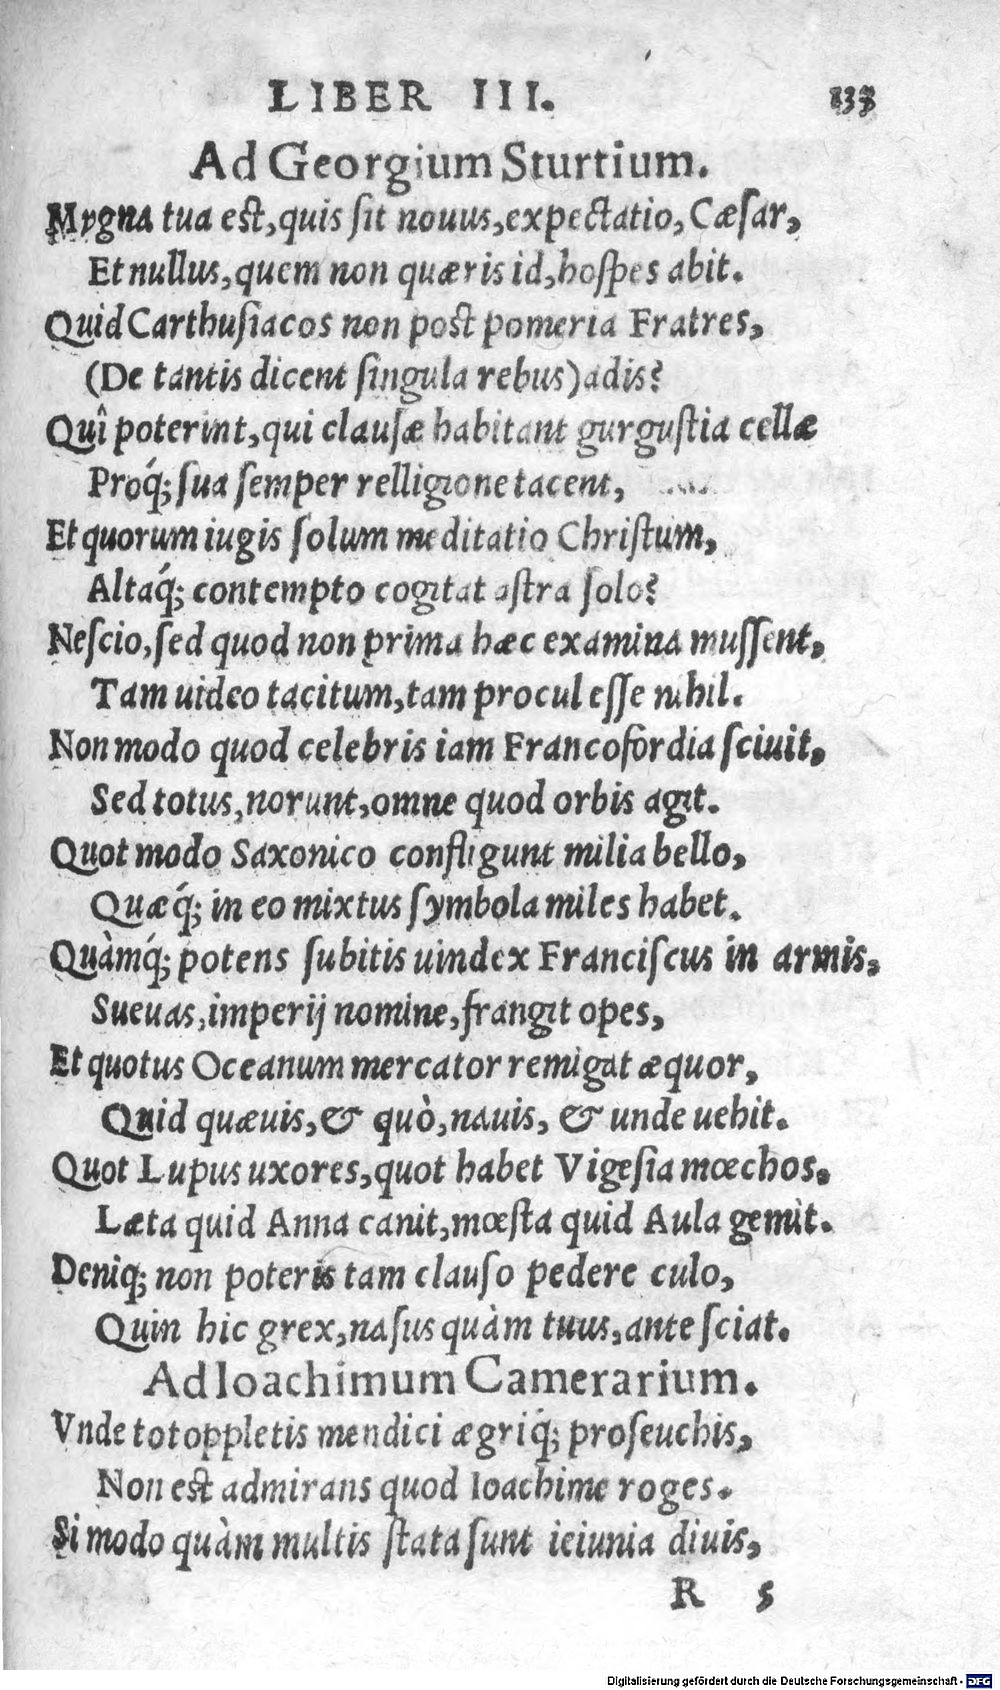 LIBER III. 133
Ad Georgium Sturtium.
Mygna tua est, quis ſit nouus, expectatio, Cæſar,
Et nullus, quem non quæris id, hoſpes abit.
Quid Carthuſiacos non post pomeria Fratres,
(De tantis dicent ſingula rebus) adis?
Quî poterint, qui clauſæ habitant gurguſtia cellæ
Proq́; ſua ſemper relligione tacent,
Et quorum iugis ſolum meditatio Chriſtum,
Altaq́; contempto cogitat aſtra ſolo?
Neſcio, ſed quod non prima hæc examina muſſent,
Tam uideo tacitum, tam procul eſſe nihil.
Non modo quod celebris iam Francofordia ſciuit,
Sed totus, norunt, omne quod orbis agit.
Quot modo Saxonico confligunt milia bello,
Quæq́; in eo mixtus ſymbola miles habet.
Quàmq́; potens ſubitis uindex Franciſcus in armis,
Sueuas, imperij nomine, frangit opes,
Et quotus Oceanum mercator remigat æquor,
Quid quæuis, & quò, nauis, & unde uehit.
Quot Lupus uxores, quot habet Vigeſia mœchos.
Læta quid Anna canit, mœſta quid Aula gemit.
Deniq; non poteris tam clauſo pedere culo,
Quin hic grex, naſus quàm tuus, ante ſciat.
Ad Ioachimum Camerarium.
Vnde tot oppletis mendici ægriq́; proſeuchis,
Non est admirans quod Ioachime roges.
Si modo quàm multis ſtata ſunt ieiunia diuis,
R 5
Digitalisierung gefördert durch die Deutsche Forschungsgemeinschaft - DFG